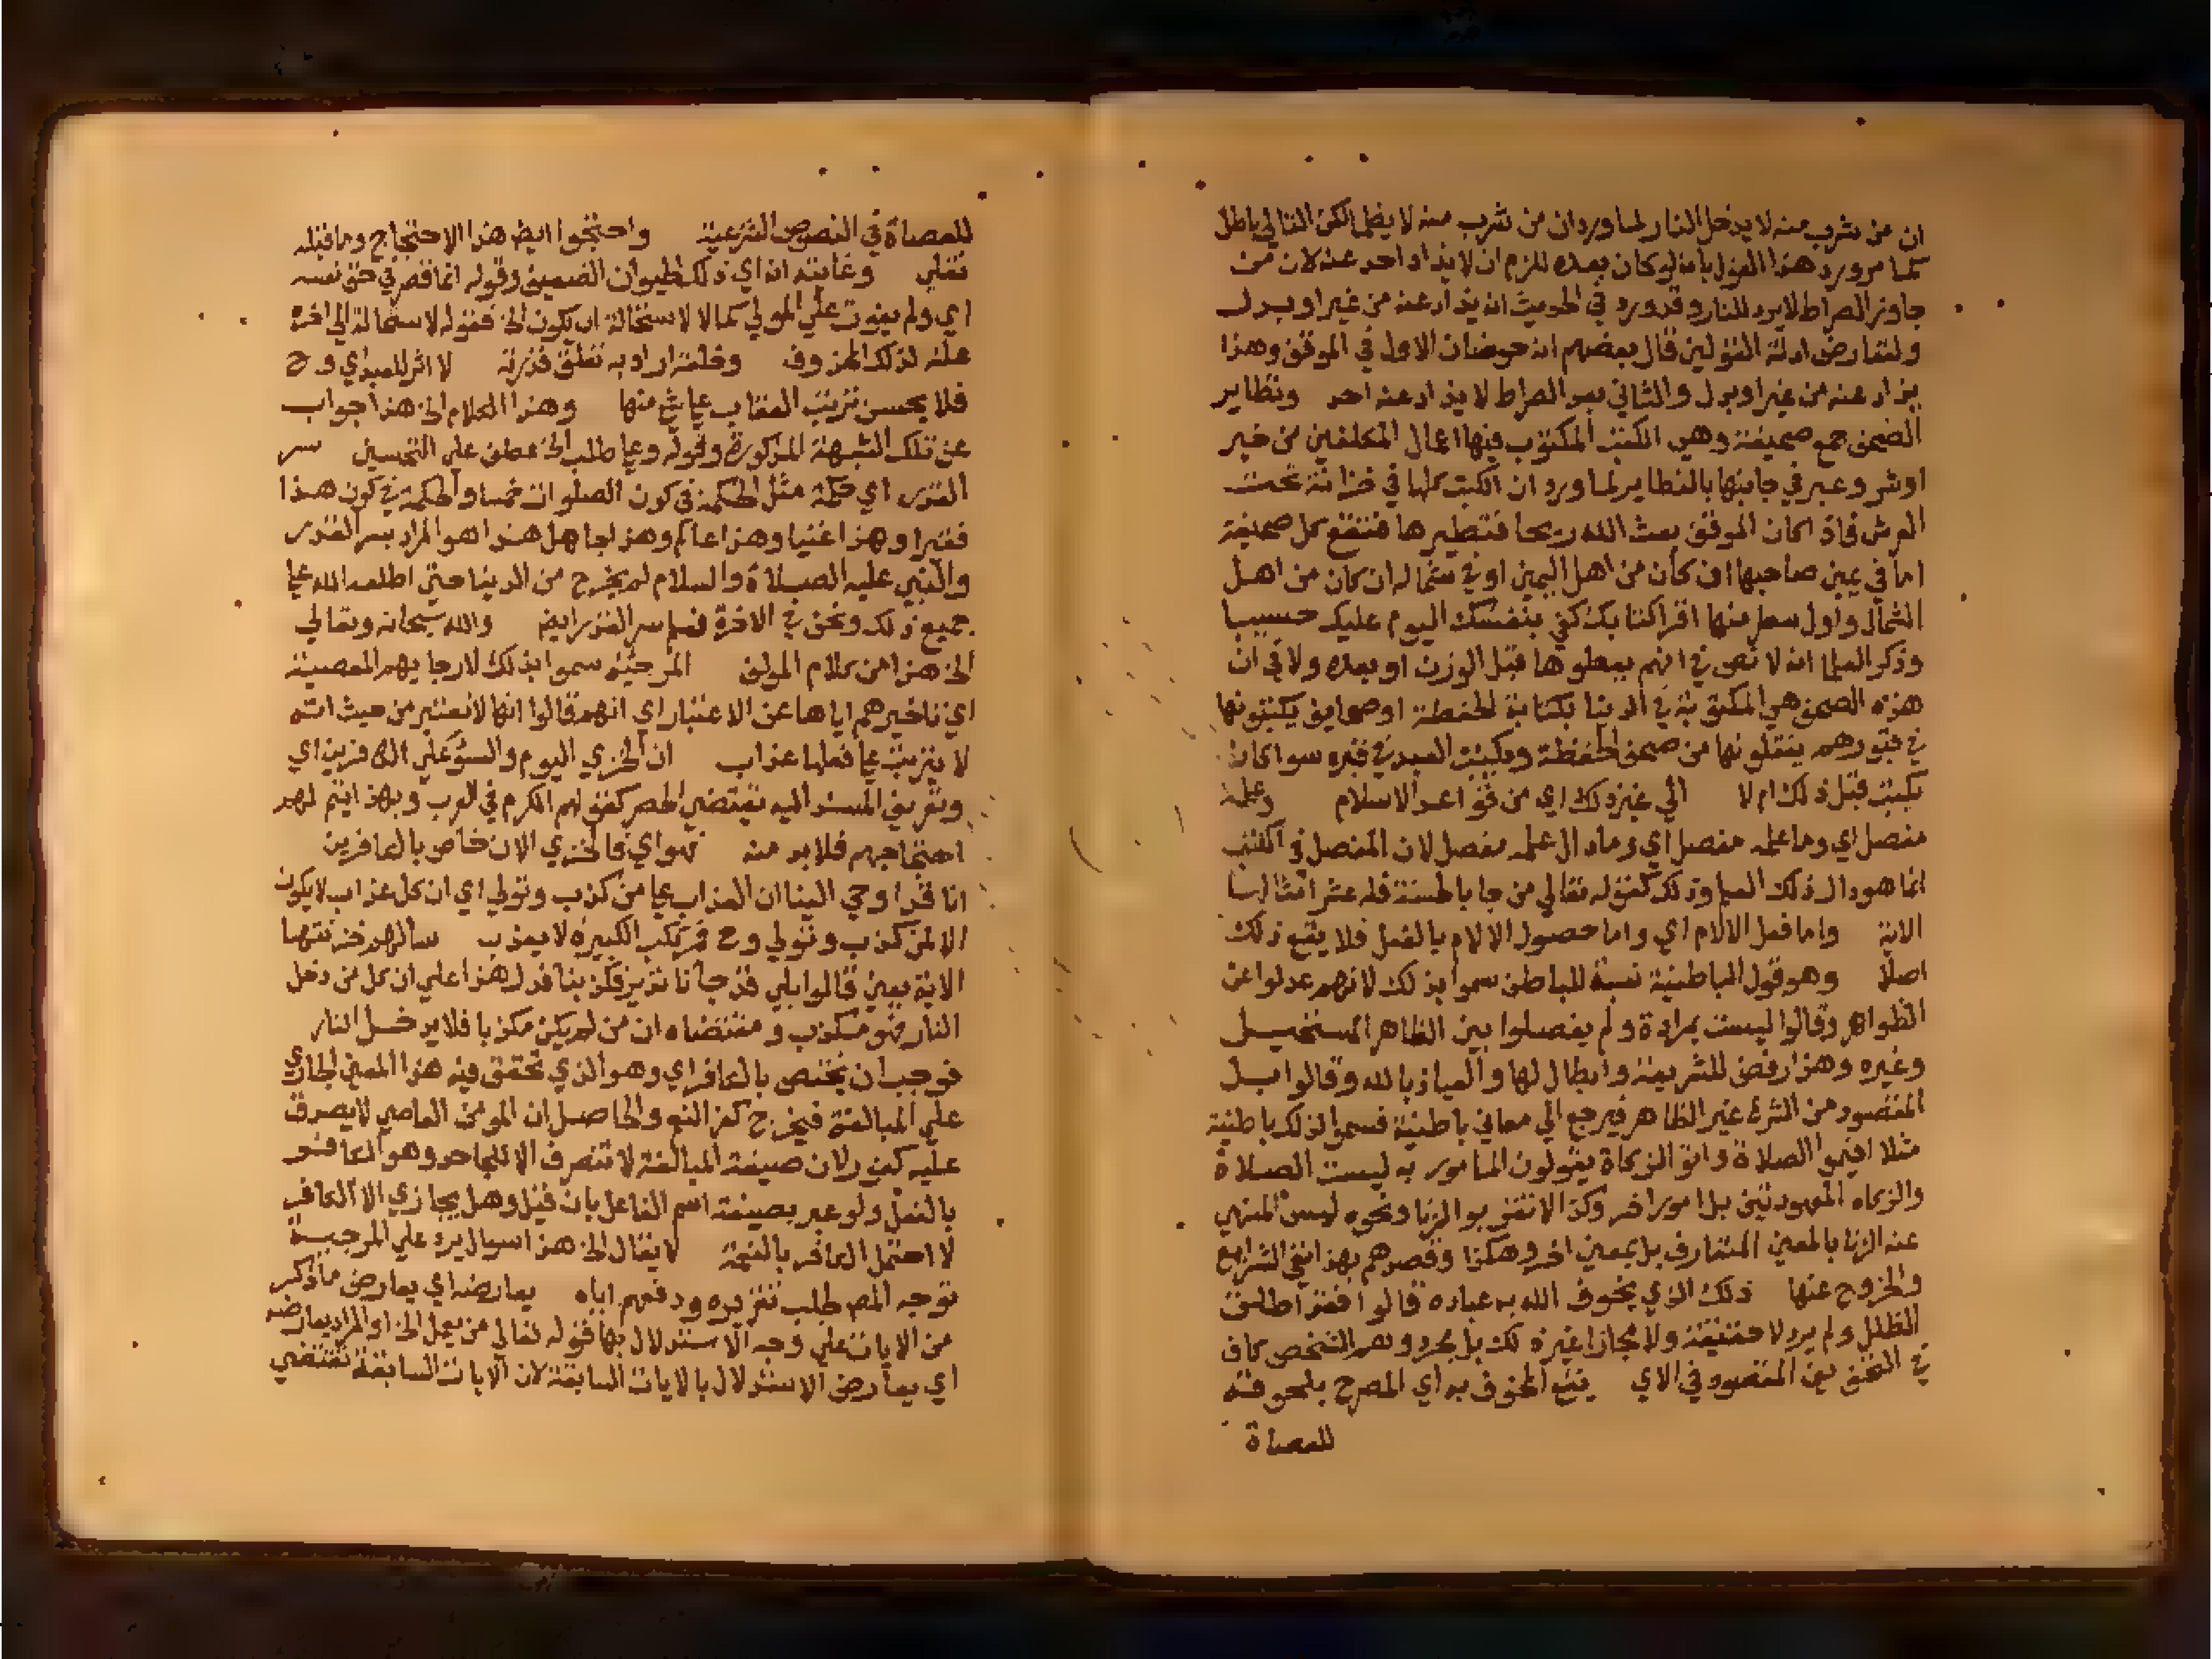 ان من شرب منه لا يدخل النار لما ورد ان من شرب منه لا يظما لكن التالي باطل
كما مر ورد هذا القول بانه لو كان بعده للزم ان لا يذاد احد عنه لان من
جاوز الصراط لا يرد للنار وقد ورد في الحديث انه يذاد عنه من غير او بدل
ولتعارض ادلة القولين قال بعضهم انه حوضان الاول في الموقف وهذا
يذاد عنه من غير او بدل والثاني بعد الصراط لا يذاد عنه احد وتطاير
الصحف جمع صحيفة وهي الكتب المكتوب فيها اعمال المكلفين من خير
او شر وعبر في جانبها بالتطاير لما ورد ان الكتب كلها في خزانة تحت
العرش فاذا كان الموقف بعث الله ريحا فتطيرها فتقع كل صحيفة
اما في يمين صاحبها ان كان من اهل اليمين او في شماله ان كان من اهل
الشمال واول سطر منها اقرا كتابك كفى بنفسك اليوم عليك حسيبا
وذكر العلما انه لا نص في انهم يعطوها قبل الوزن او بعده ولا في ان
هذه الصحف هي المكتوبة في الدنيا بكتابة الحفظة او صحايف يكتبونها
في قبورهم ينقلونها من صحف الحفظة ويكتب العبد في قبره سوا كانت
تكتب قبل ذلك ام لا الي غير ذلك اي من قواعد الاسلام وعلمه
مفصل اي وما علمه مفصل اي وما دال علمه مفصل لان المفصل في الكتب
انما هو دال ذلك العلم وذلك كقوله تعالي من جا بالحسنة فله عشر امثالها
الاية واما فعل الالام اي واما حصول الالام بالفعل فلا يقع ذلك
اصلا وهو قول الباطنية نسبة للباطن سموا بذلك لانهم عدلوا عن
الظواهر وقالوا ليست بمرادة ولم يفصلوا بين الظاهر المستحيل
وغيره وهذا رفض للشريعة وابطال لها والعياذ بالله وقالوا بل
المقصود من الشرع غير الظاهر فيرجع الي معاني باطنية فسموا لذلك باطنية
مثلا اقيموا الصلاة واتوا الزكاة يقولون المامور به ليست الصلاة
والزكاه المعهودتين بل امور اخر وكذا لا تقربوا الزنا ونحوه ليس المنهي
عنه الزنا بالمعنى المتعارف بل بمعنى اخر وهكذا وقصدهم بهذا نفي الشرايع
والخروج عنها ذلك الذي يخوف الله به عباده قالوا فقد اطلق
الظلل ولم يرد لا حقيقة ولا مجازا غير ذلك بل مجرد وهم الشخص كاف
في التخويف المقصود في الاي يقع المخوف به اي المصرح بلحوقه
للعصاة
للعصاة في النصوص الشرعية واحتجوا ايضا هذا الاحتجاج وما قبله
نقلي وغايته ان اي ذلك الحيوان الضعيف وقوله انما قصر في حق نفسه
اي ولم يفوت علي المولي كمالا لاستحالة ان يكون الخ فقوله لاستحالة الي اخره
علة لذلك المحذوف وخلقه اراد به تعلق قدرته لا اثر للعبد اي وح
فلا يحسن ترتيب العقاب علي شي منها وهذا الكلام الخ هذا جواب
عن تلك الشبهة المذكورة وقوله وعلي طلب الخ عطف علي التحسين سر
القدر اي حكمة مثل الحكمة في كون الصلوات خمسا والحكمة في كون هذا
فقيرا وهذا غنيا وهذا عالم وهذا جاهل هذا هو المراد بسر القدر
والنبي عليه الصلاة والسلام لم يخرج من الدنيا حتى اطلعه الله علي
جميع ذلك ونحن في الاخرة نعلم سر القدر ايضا والله سبحانه وتعالي
الخ هذا من كلام المولف المرجية سموا بذلك لارجايهم المعصية
اي تاخيرهم اياها عن الاعتبار اي انهم قالوا انها لا تعتبر من حيث انه
لا يترتب علي فعلها عذاب ان الخزي اليوم والسو علي الكافرين اي
وتعريف المسند اليه يقتضي الحصر كقولهم الكرم في العرب وبهذا يتم لهم
احتجاجهم فلا بد منه فهو اي فالخزي الان خاص بالكافرين
انا قد اوحي الينا ان العذاب علي من كذب وتولي اي ان كل عذاب لا يكون
الا لمن كذب وتولي وح فمرتكب الكبيرة لا يعذب سالهم خزنتها
الاية يعني قالوا بلي قد جانا نذير فكذبنا فدل هذا علي ان كل من دخل
النار فهو مكذب ومقتضاه ان من لم يكن مكذبا فلا يدخل النار
فوجب ان يختص بالكافر اي وهو الذي تحقق فيه هذا المعنى الجاري
علي المبالغة فيخرج كفر النعم والحاصل ان المومن العاصي لا يصدق
عليه كفور لان صيغة المبالغة لا تنصرف الا للجاحد وهو الكافر
بالفعل ولو عبر بصيغة اسم الفاعل بان قيل وهل يجازي الا الكافر
لاحتمل الكافر بالنعمة لا يقال الخ هذا سوال يرد علي المرجية
توجه المص طلب تقريره ودفعهم اياه يعارضه اي يعارض ما ذكر
من الايات علي وجه الاستدلال بها قوله تعالي من يعمل الخ او المراد يعارضه
اي يعارض الاستدلال بالايات السابقة لان الايات السابقة تقتضي